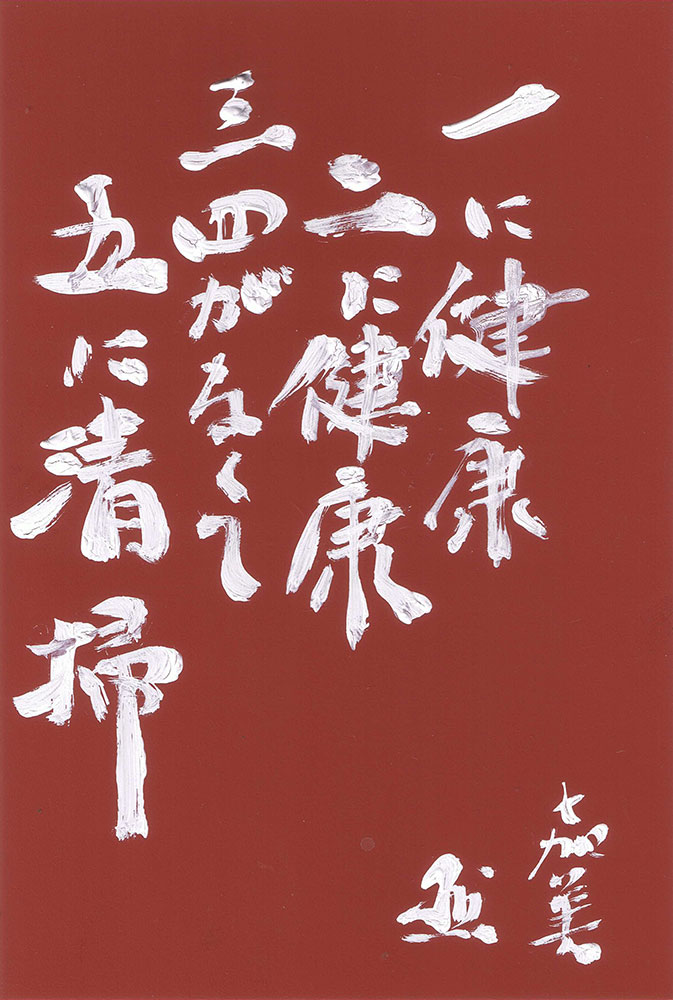 一に健康
二に健康
三四がなくて
五に清掃